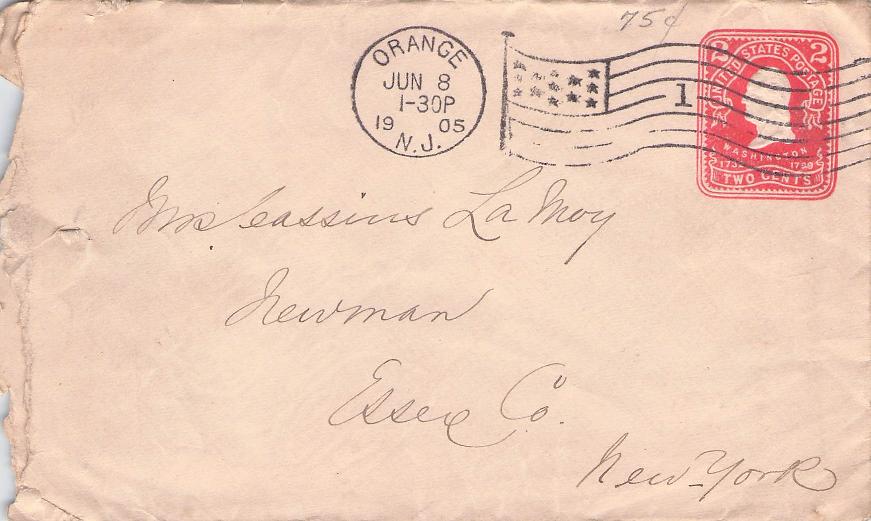 75¢
ORANGE
JUN 8
1-30P
19 05
N.J.
1
2 2
UNITED STATES POSTAGE
WASHINGTON
1732 1799
TWO CENTS
Mrs Cassius LaMoy
Newman
Essex Co.
New-York